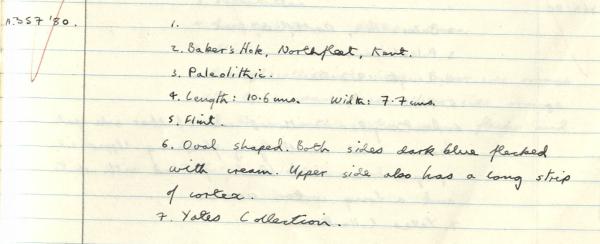 A.357'80.
1.
2. Baker's Hole, Northfleet, Kent.
3. Paleolithic.
4. Length: 10.6 cms. Width: 7.7 cms.
5. Flint.
6. Oval shaped. Both sides dark blue flecked
with cream. Upper side also has a long strip
of cortex.
7. Yates Collection.